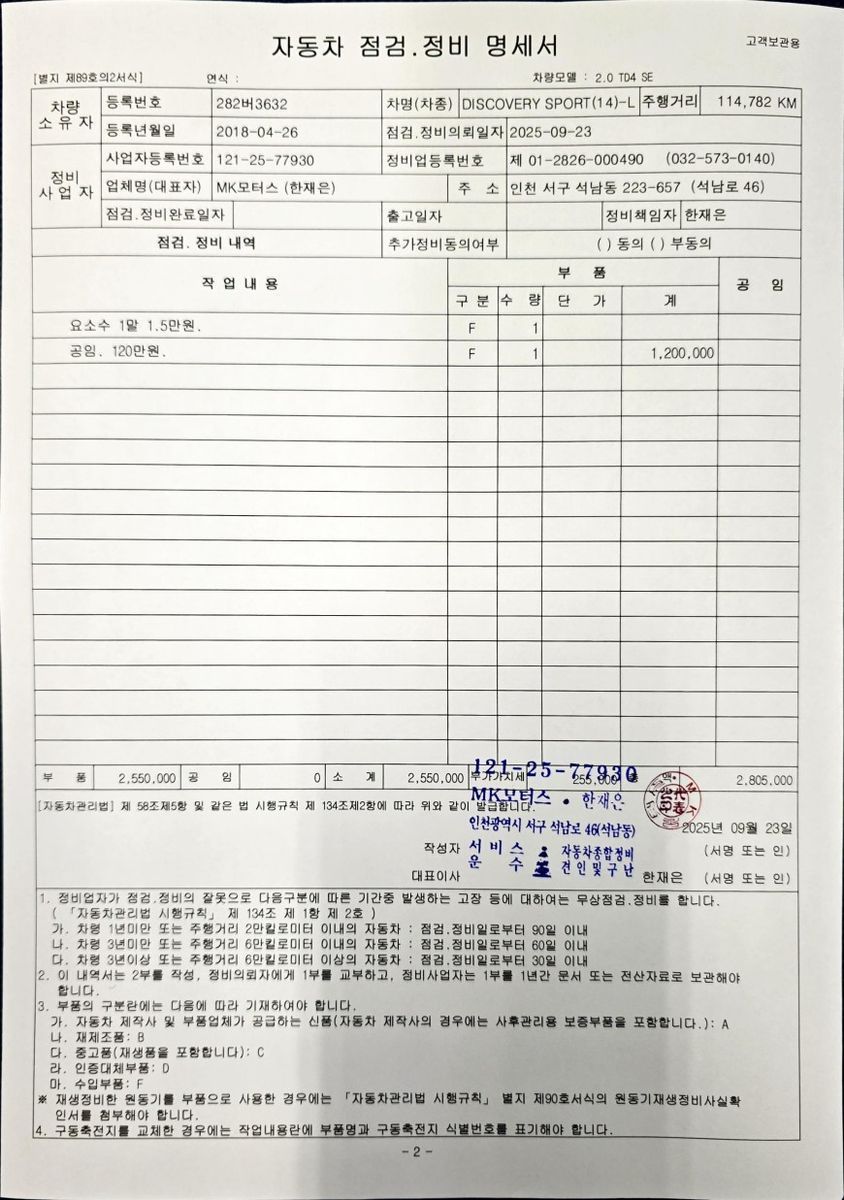 자동차 점검.정비 명세서
고객보관용
[별지 제89호의2서식] 연식 : 차량모델 : 2.0 TD4 SE
차량 소유자 등록번호 282버3632 차명(차종) DISCOVERY SPORT(14)-L 주행거리 114,782 KM
등록년월일 2018-04-26 점검.정비의뢰일자 2025-09-23
정비 사업자 사업자등록번호 121-25-77930 정비업등록번호 제 01-2826-000490 (032-573-0140)
업체명(대표자) MK모터스 (한재은) 주 소 인천 서구 석남동 223-657 (석남로 46)
점검.정비완료일자 출고일자 정비책임자 한재은
점검. 정비 내역 추가정비동의여부 ( ) 동의 ( ) 부동의
작 업 내 용 부 품 공 임
구 분 수 량 단 가 계
요소수 1말 1.5만원. F 1
공임. 120만원. F 1 1,200,000
부 품 2,550,000 공 임 0 소 계 2,550,000 부가가치세 255,000 총 액 2,805,000
[자동차관리법] 제 58조제5항 및 같은 법 시행규칙 제 134조제2항에 따라 위와 같이 발급합니다.
121-25-77930
MK모터스 • 한재은
인천광역시 서구 석남로 46(석남동)
서비스 자동차종합정비
운 수 견인및구난
2025년 09월 23일
작성자 (서명 또는 인)
대표이사 한재은 (서명 또는 인)
1. 정비업자가 점검.정비의 잘못으로 다음구분에 따른 기간중 발생하는 고장 등에 대하여는 무상점검.정비를 합니다.
( 「자동차관리법 시행규칙」 제 134조 제 1항 제 2호 )
가. 차령 1년미만 또는 주행거리 2만킬로미터 이내의 자동차 : 점검.정비일로부터 90일 이내
나. 차령 3년미만 또는 주행거리 6만킬로미터 이내의 자동차 : 점검.정비일로부터 60일 이내
다. 차령 3년이상 또는 주행거리 6만킬로미터 이상의 자동차 : 점검.정비일로부터 30일 이내
2. 이 내역서는 2부를 작성, 정비의뢰자에게 1부를 교부하고, 정비사업자는 1부를 1년간 문서 또는 전산자료로 보관해야
합니다.
3. 부품의 구분란에는 다음에 따라 기재하여야 합니다.
가. 자동차 제작사 및 부품업체가 공급하는 신품(자동차 제작사의 경우에는 사후관리용 보증부품을 포함합니다.): A
나. 재제조품: B
다. 중고품(재생품을 포함합니다): C
라. 인증대체부품: D
마. 수입부품: F
※ 재생정비한 원동기를 부품으로 사용한 경우에는 「자동차관리법 시행규칙」 별지 제90호서식의 원동기재생정비사실확
인서를 첨부해야 합니다.
4. 구동축전지를 교체한 경우에는 작업내용란에 부품명과 구동축전지 식별번호를 표기해야 합니다.
- 2 -